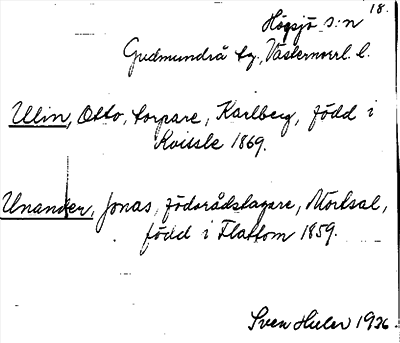 18.
Högsjö s:n
Gudmundrå tg., Västernorrl. l.
Ulin, Otto, torpare, Karlberg, född i
Kvissle 1869.
Unander, Jonas, födorådstagare, Mörtsal,
född i Flattom 1859.
Sven Huler 1936